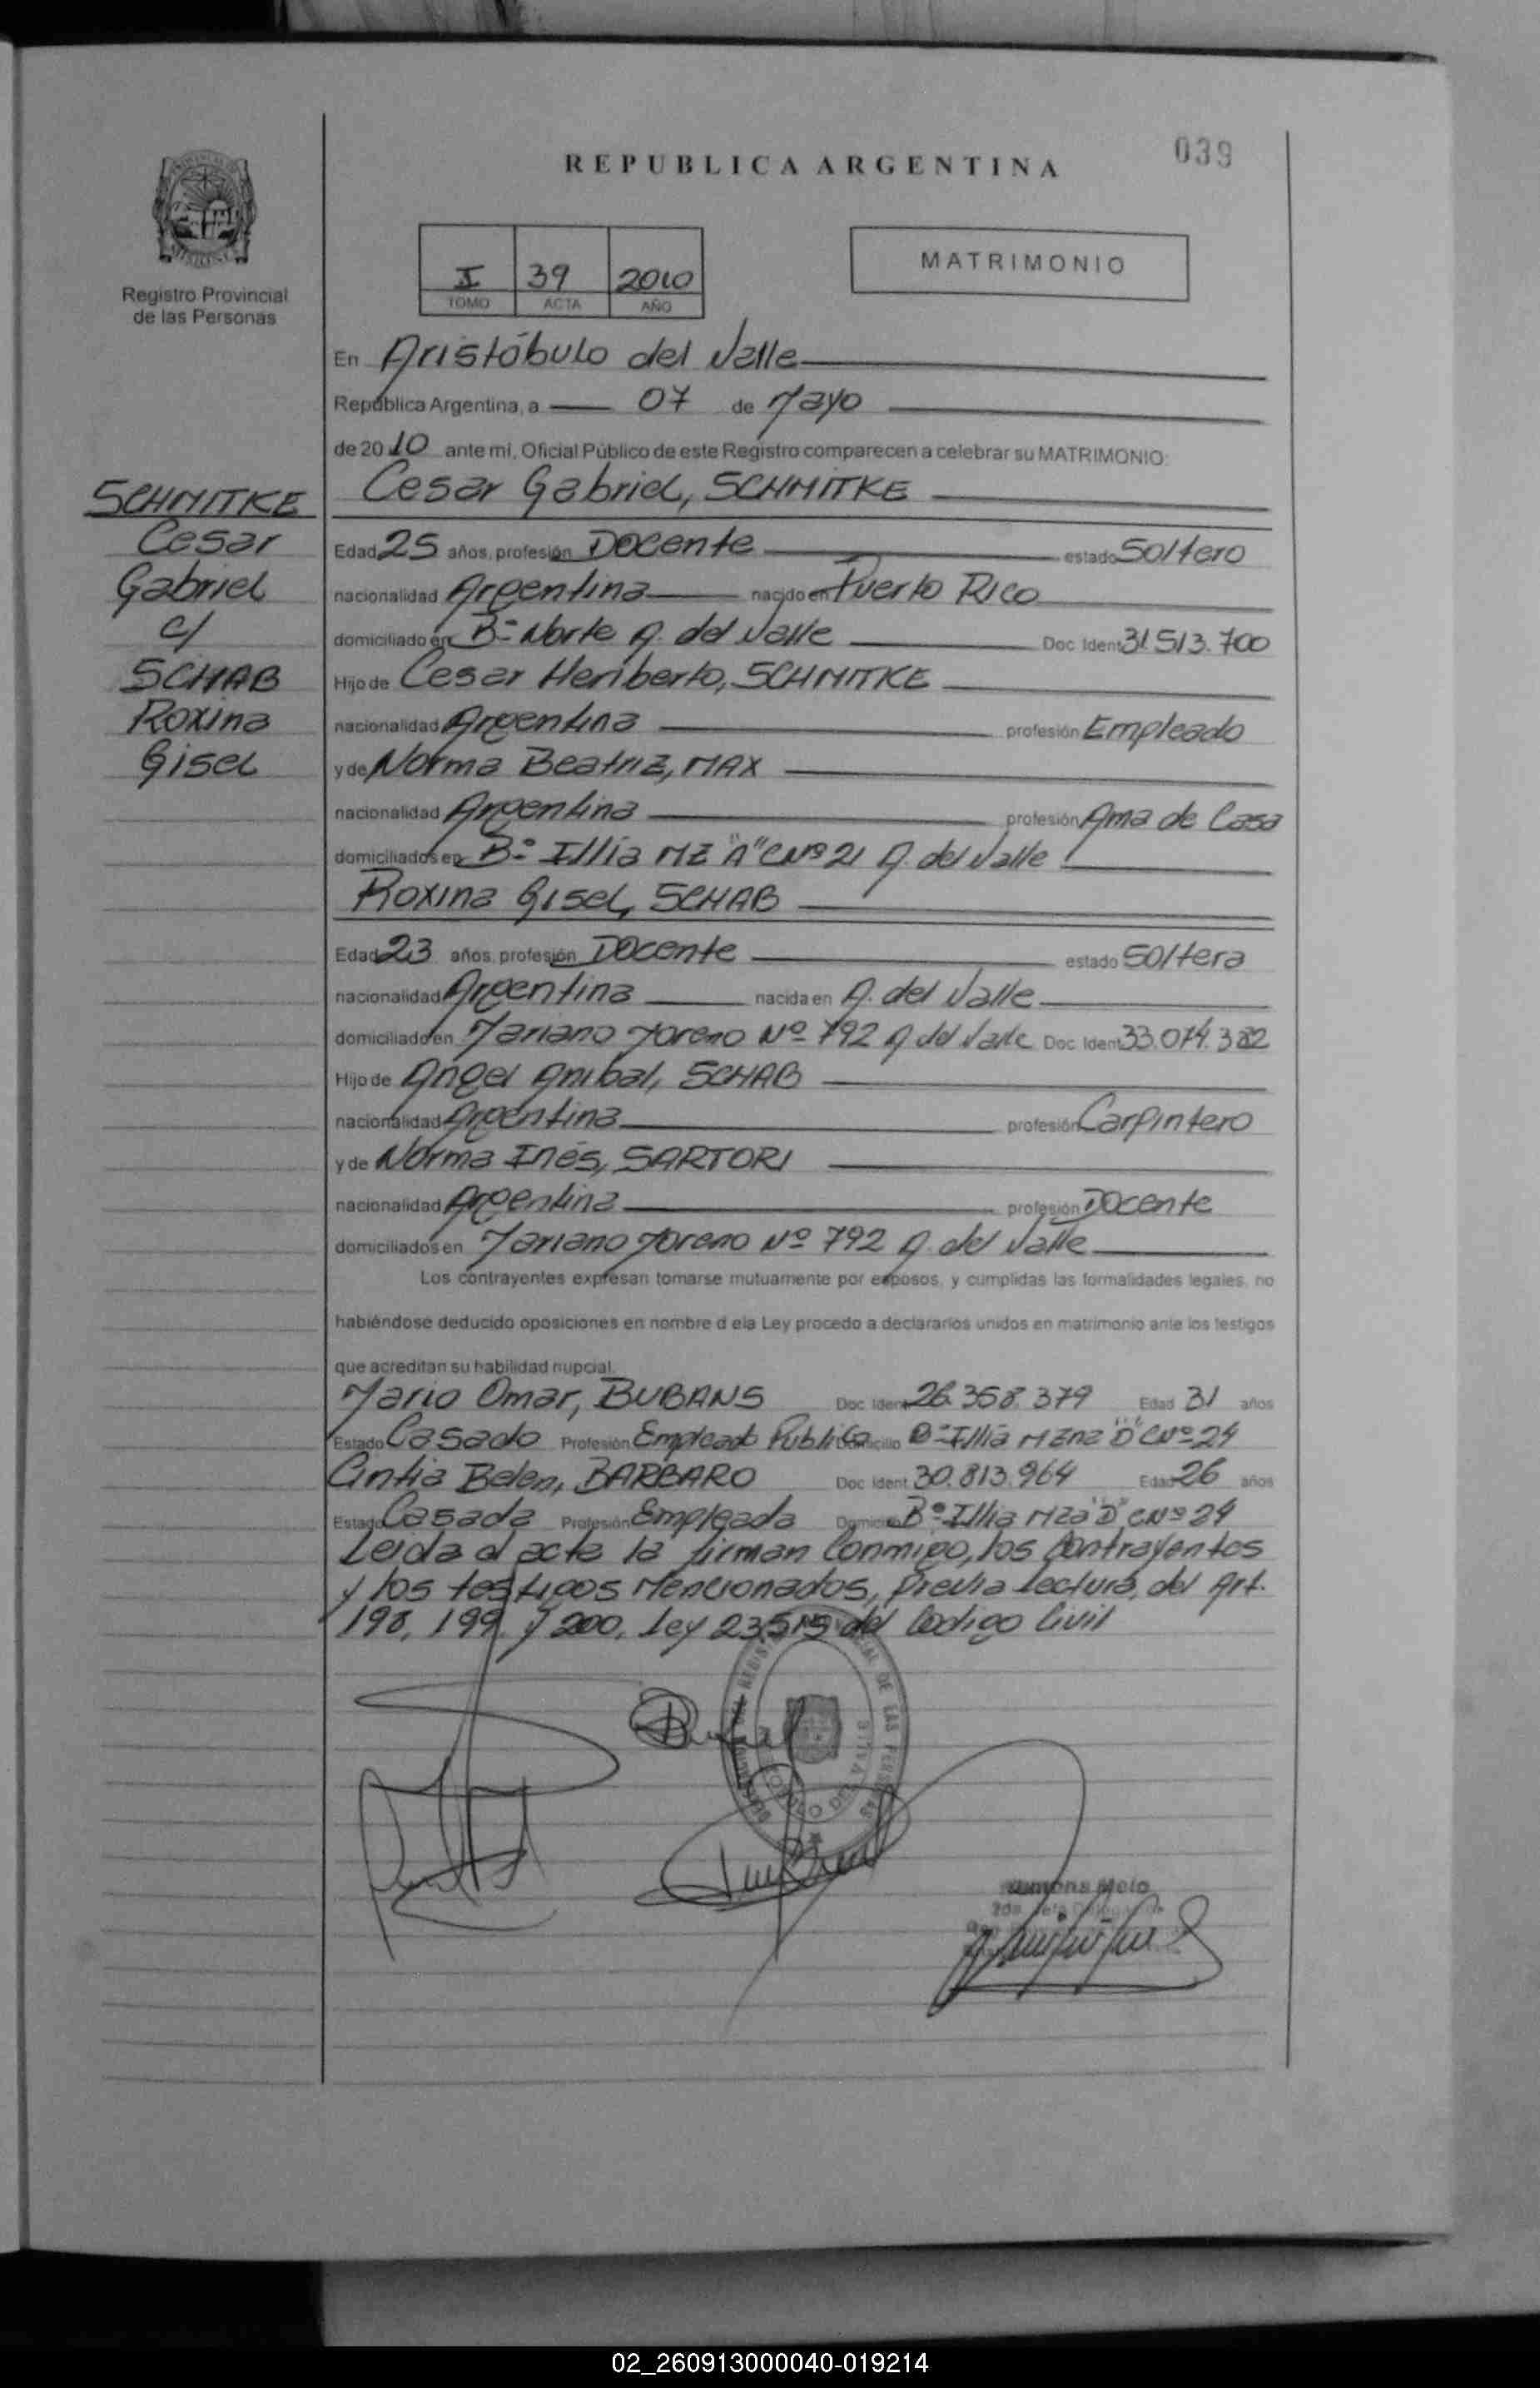 039
REPUBLICA ARGENTINA
I 39 2010
TOMO ACTA AÑO
MATRIMONIO
Registro Provincial
de las Personas
SCHMITKE
Cesar
Gabriel
c/
SCHAB
Roxina
Gisel
En Aristóbulo del Valle
República Argentina, a 07 de Mayo
de 2010 ante mi, Oficial Público de este Registro comparecen a celebrar su MATRIMONIO:
Cesar Gabriel, SCHMITKE
Edad 25 años, profesión Docente estado Soltero
nacionalidad Argentina nacido en Puerto Rico
domiciliado en Bº Norte A. del Valle Doc Ident 31.513.700
Hijo de Cesar Heriberto, SCHMITKE
nacionalidad Argentina profesión Empleado
y de Norma Beatriz, MAX
nacionalidad Argentina profesión Ama de Casa
domiciliados en Bº Illia MZ "A" C Nº 21 A. del Valle
Roxina Gisel, SCHAB
Edad 23 años, profesión Docente estado Soltera
nacionalidad Argentina nacida en A. del Valle
domiciliado en Mariano Moreno Nº 792 A del Valle Doc Ident 33.074.382
Hijo de Angel Anibal, SCHAB
nacionalidad Argentina profesión Carpintero
y de Norma Inés, SARTORI
nacionalidad Argentina profesión Docente
domiciliados en Mariano Moreno Nº 792 A. del Valle
Los contrayentes expresan tomarse mutuamente por esposos, y cumplidas las formalidades legales, no
habiéndose deducido oposiciones en nombre d ela Ley procedo a declararlos unidos en matrimonio ante los testigos
que acreditan su habilidad nupcial.
Mario Omar, BUBANS Doc Ident 26.358.379 Edad 31 años
Estado Casado Profesión Empleado Publico Domicilio Bº Illia MZna "D" C Nº 24
Cintia Belen, BARBARO Doc Ident 30.813.964 Edad 26 años
Estado Casada Profesión Empleada Domicilio Bº Illia MZa "D" C Nº 24
Leida el acta la firman Conmigo, los Contrayentes
y los testigos Mencionados, Previa lectura, del Art.
198, 199 y 200, Ley 23515 del Codigo Civil
Ramona Melo
02_260913000040-019214